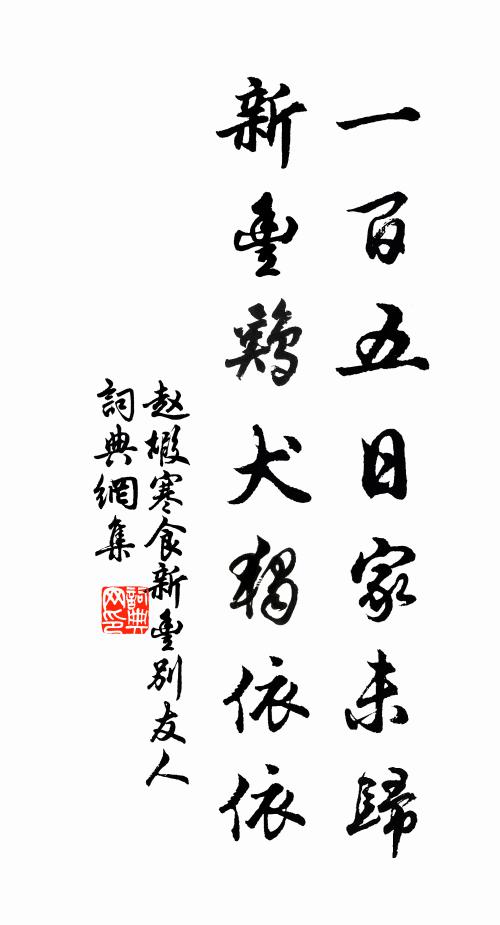 一百五日家未歸
新豐鷄犬獨依依
赵椵寒食新豐别友人
詞典網集
詞典
网印